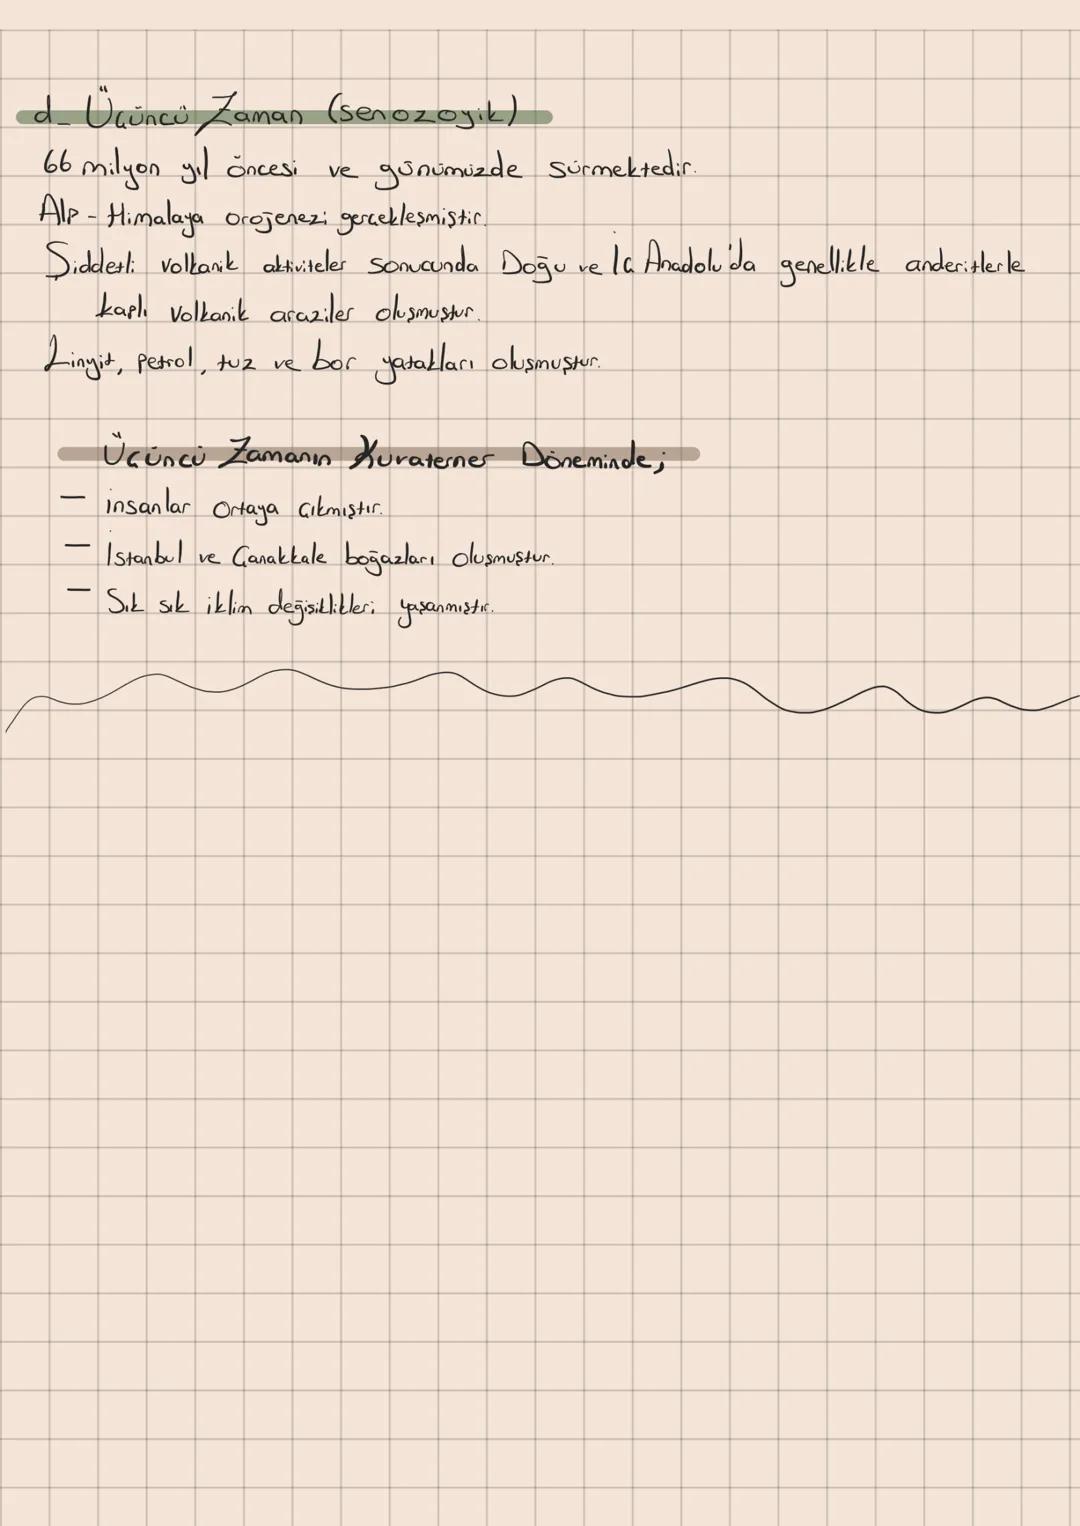 d- Üçüncü Zaman (senozoyik)
66 milyon yıl öncesi ve günümüzde sürmektedir.
Alp - Himalaya orojenezi gerçekleşmiştir.
Şiddetli volkanik aktiviteler sonucunda Doğu ve İç Anadolu'da genellikle anderitlerle
kaplı volkanik araziler oluşmuştur.
Linyit, petrol, tuz ve bor yatakları oluşmuştur.
Üçüncü Zamanın Kuraterner Döneminde;
- insanlar ortaya çıkmıştır.
- İstanbul ve Çanakkale boğazları oluşmuştur.
- Sık sık iklim değişiklikleri yaşanmıştır.